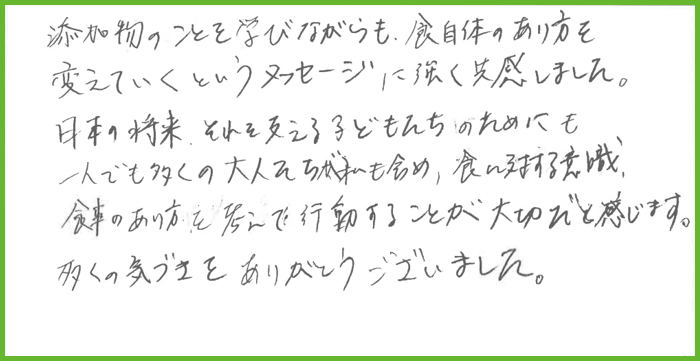 添加物のことを学びながらも、食自体のあり方を
変えていくというメッセージに強く共感しました。
日本の将来、それを支える子どもたちのためにも
一人でも多くの大人たちが私も含め、食に対する意識、
食事のあり方を考えて行動することが大切だと感じます。
多くの気づきをありがとうございました。